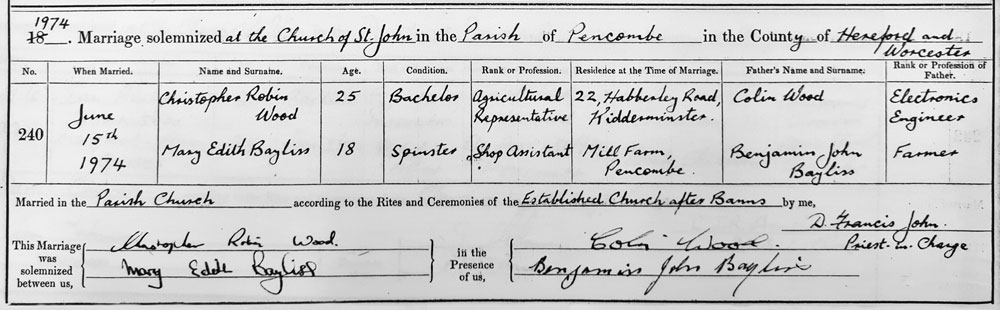 1974
18 . Marriage solemnized at the Church of St. John in the Parish of Pencombe in the County of Hereford and Worcester
No. When Married. Name and Surname. Age. Condition. Rank or Profession. Residence at the Time of Marriage. Father's Name and Surname. Rank or Profession of Father.
240 June 15th 1974
Christopher Robin Wood 25 Bachelor Agricultural Representative 22, Habberley Road, Kidderminster. Colin Wood Electronics Engineer
Mary Edith Bayliss 18 Spinster Shop Assistant Mill Farm, Pencombe. Benjamin John Bayliss Farmer
Married in the Parish Church according to the Rites and Ceremonies of the Established Church after Banns by me,
D. Francis John.
Priest in Charge
This Marriage was solemnized between us,
Christopher Robin Wood.
Mary Edith Bayliss
in the Presence of us,
Colin Wood.
Benjamin John Bayliss